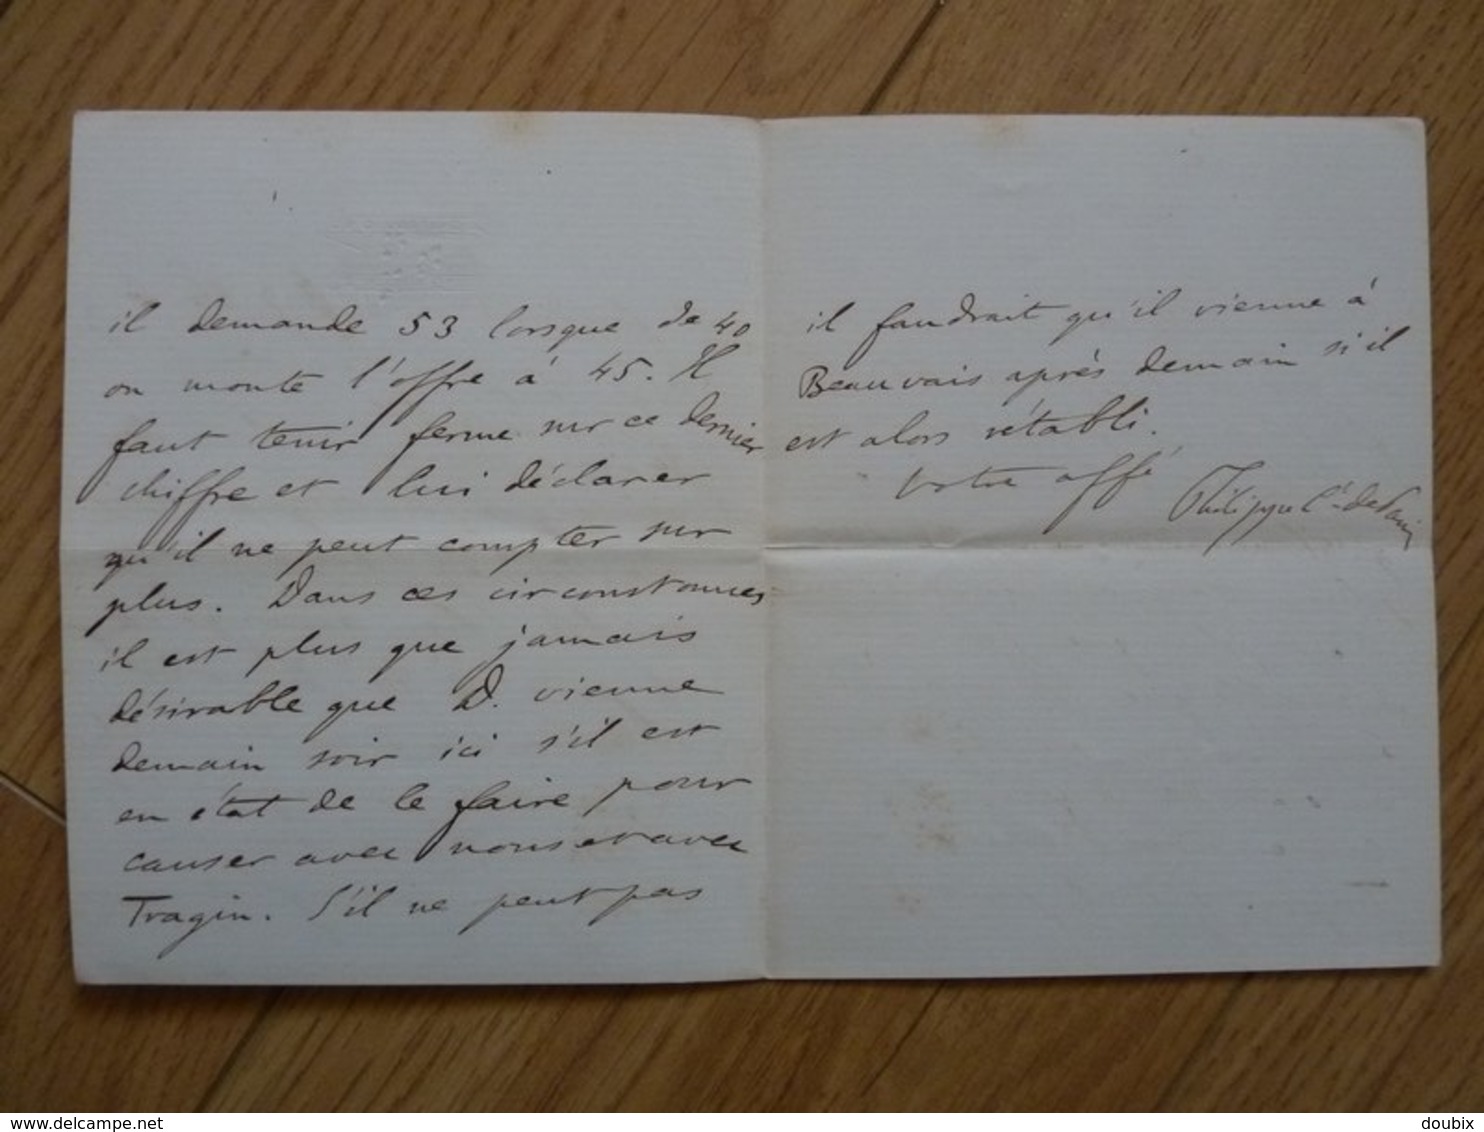 il demande 53 lorsque de 40
on monte l'offre à 45. Il
faut tenir ferme sur ce dernier
chiffre et lui déclarer
qu'il ne peut compter sur
plus. Dans ces circonstances
il est plus que jamais
désirable que D. vienne
demain soir ici s'il est
en état de le faire pour
causer avec nous et avec
Tragin. S'il ne peut pas
il faudrait qu'il vienne à
Beauvais après demain si il
est alors rétabli.
Votre affé
Philippe Cte de Paris
www.delcampe.net
doubix